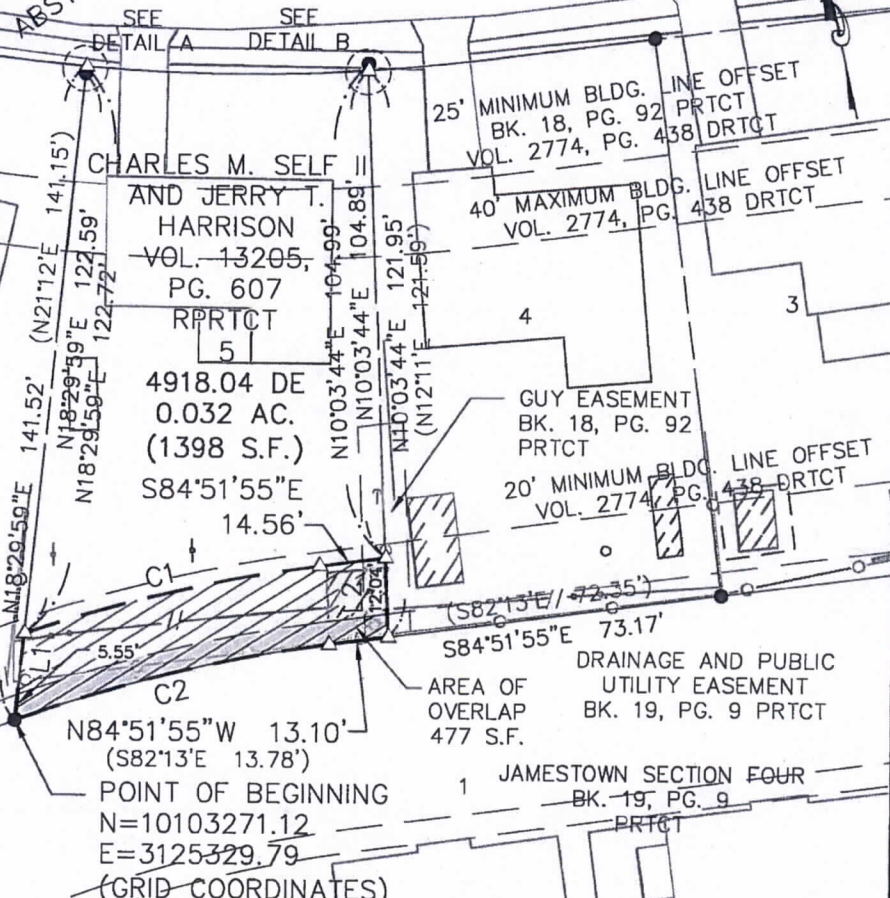 ABST
SEE
DETAIL A
SEE
DETAIL B
25' MINIMUM BLDG. LINE OFFSET
BK. 18, PG. 92 PRTCT
VOL. 2774, PG. 438 DRTCT
40' MAXIMUM BLDG. LINE OFFSET
VOL. 2774, PG. 438 DRTCT
CHARLES M. SELF II
AND JERRY T.
HARRISON
VOL. 13205,
PG. 607
RPRTCT
5
4918.04 DE
0.032 AC.
(1398 S.F.)
(N21°12'E 141.15')
N18°29'59"E 122.59'
N18°29'59"E 122.72'
N18°29'59"E 141.52'
N10°03'44"E 104.99'
N10°03'44"E 104.89'
N10°03'44"E 121.95'
(N12°11'E 121.59')
4
3
GUY EASEMENT
BK. 18, PG. 92
PRTCT
20' MINIMUM BLDG. LINE OFFSET
VOL. 2774, PG. 438 DRTCT
S84°51'55"E
14.56'
C1
L2
12.04'
L1
5.55'
C2
(S82°13'E 72.35')
S84°51'55"E 73.17'
DRAINAGE AND PUBLIC
UTILITY EASEMENT
BK. 19, PG. 9 PRTCT
AREA OF
OVERLAP
477 S.F.
N84°51'55"W 13.10'
(S82°13'E 13.78')
POINT OF BEGINNING
N=10103271.12
E=3125329.79
(GRID COORDINATES)
1
JAMESTOWN SECTION FOUR
BK. 19, PG. 9
PRTCT